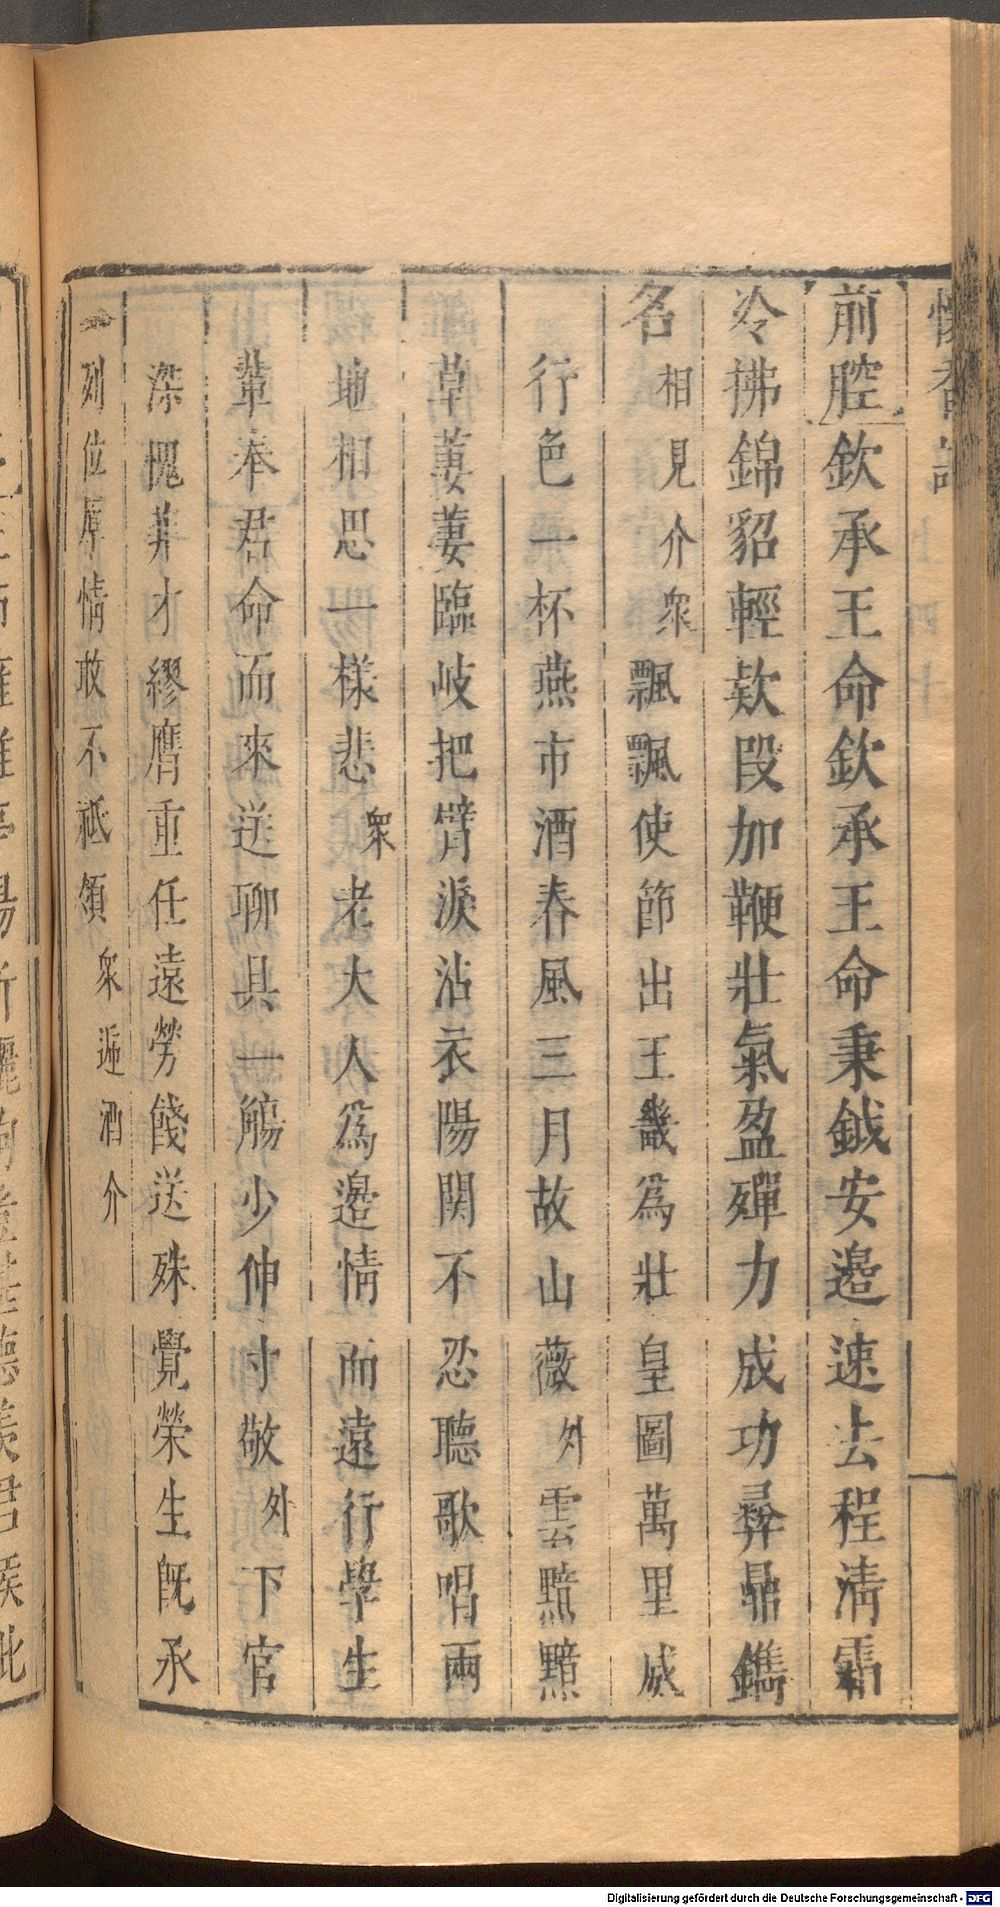 懷香記
前腔欽承王命欽承王命秉鉞安邊速去程清霜
冷拂錦貂輕欵段加鞭壯氣盈殫力成功彞鼎鐫
名相見介衆飄飄使節出王畿爲壯皇圖萬里威
行色一杯燕市酒春風三月故山薇外雲黯黯
草萋萋臨岐把臂淚沾衣陽関不忍聽歌唱兩
地相思一樣悲衆老大人爲邊情而遠行學生
輩奉君命而來送聊具一觴少伸寸敬外下官
深愧菲才繆膺重任遠勞餞送殊覺榮生旣承
列位厚情敢不祗領衆遞酒介
Digitalisierung gefördert durch die Deutsche Forschungsgemeinschaft - DFG